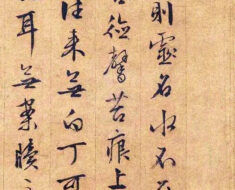 則靈名水不
吾德馨苔痕上
往來無白丁可
耳無案牘之